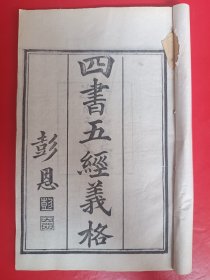 四書五經義格
彭恩